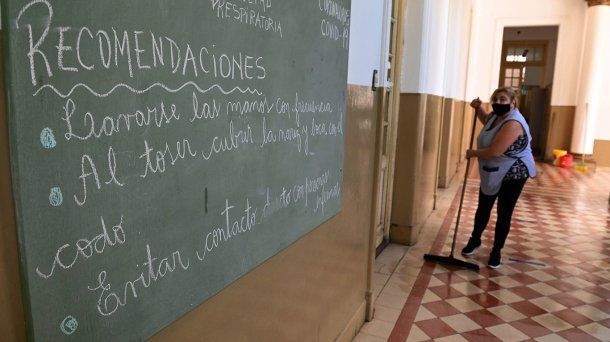 RESPIRATORIA
COVID-
RECOMENDACIONES
Lavarse las manos con frecuencia
Al toser, cubrir la nariz y boca con el
codo
Evitar contacto directo con personas
enfermas